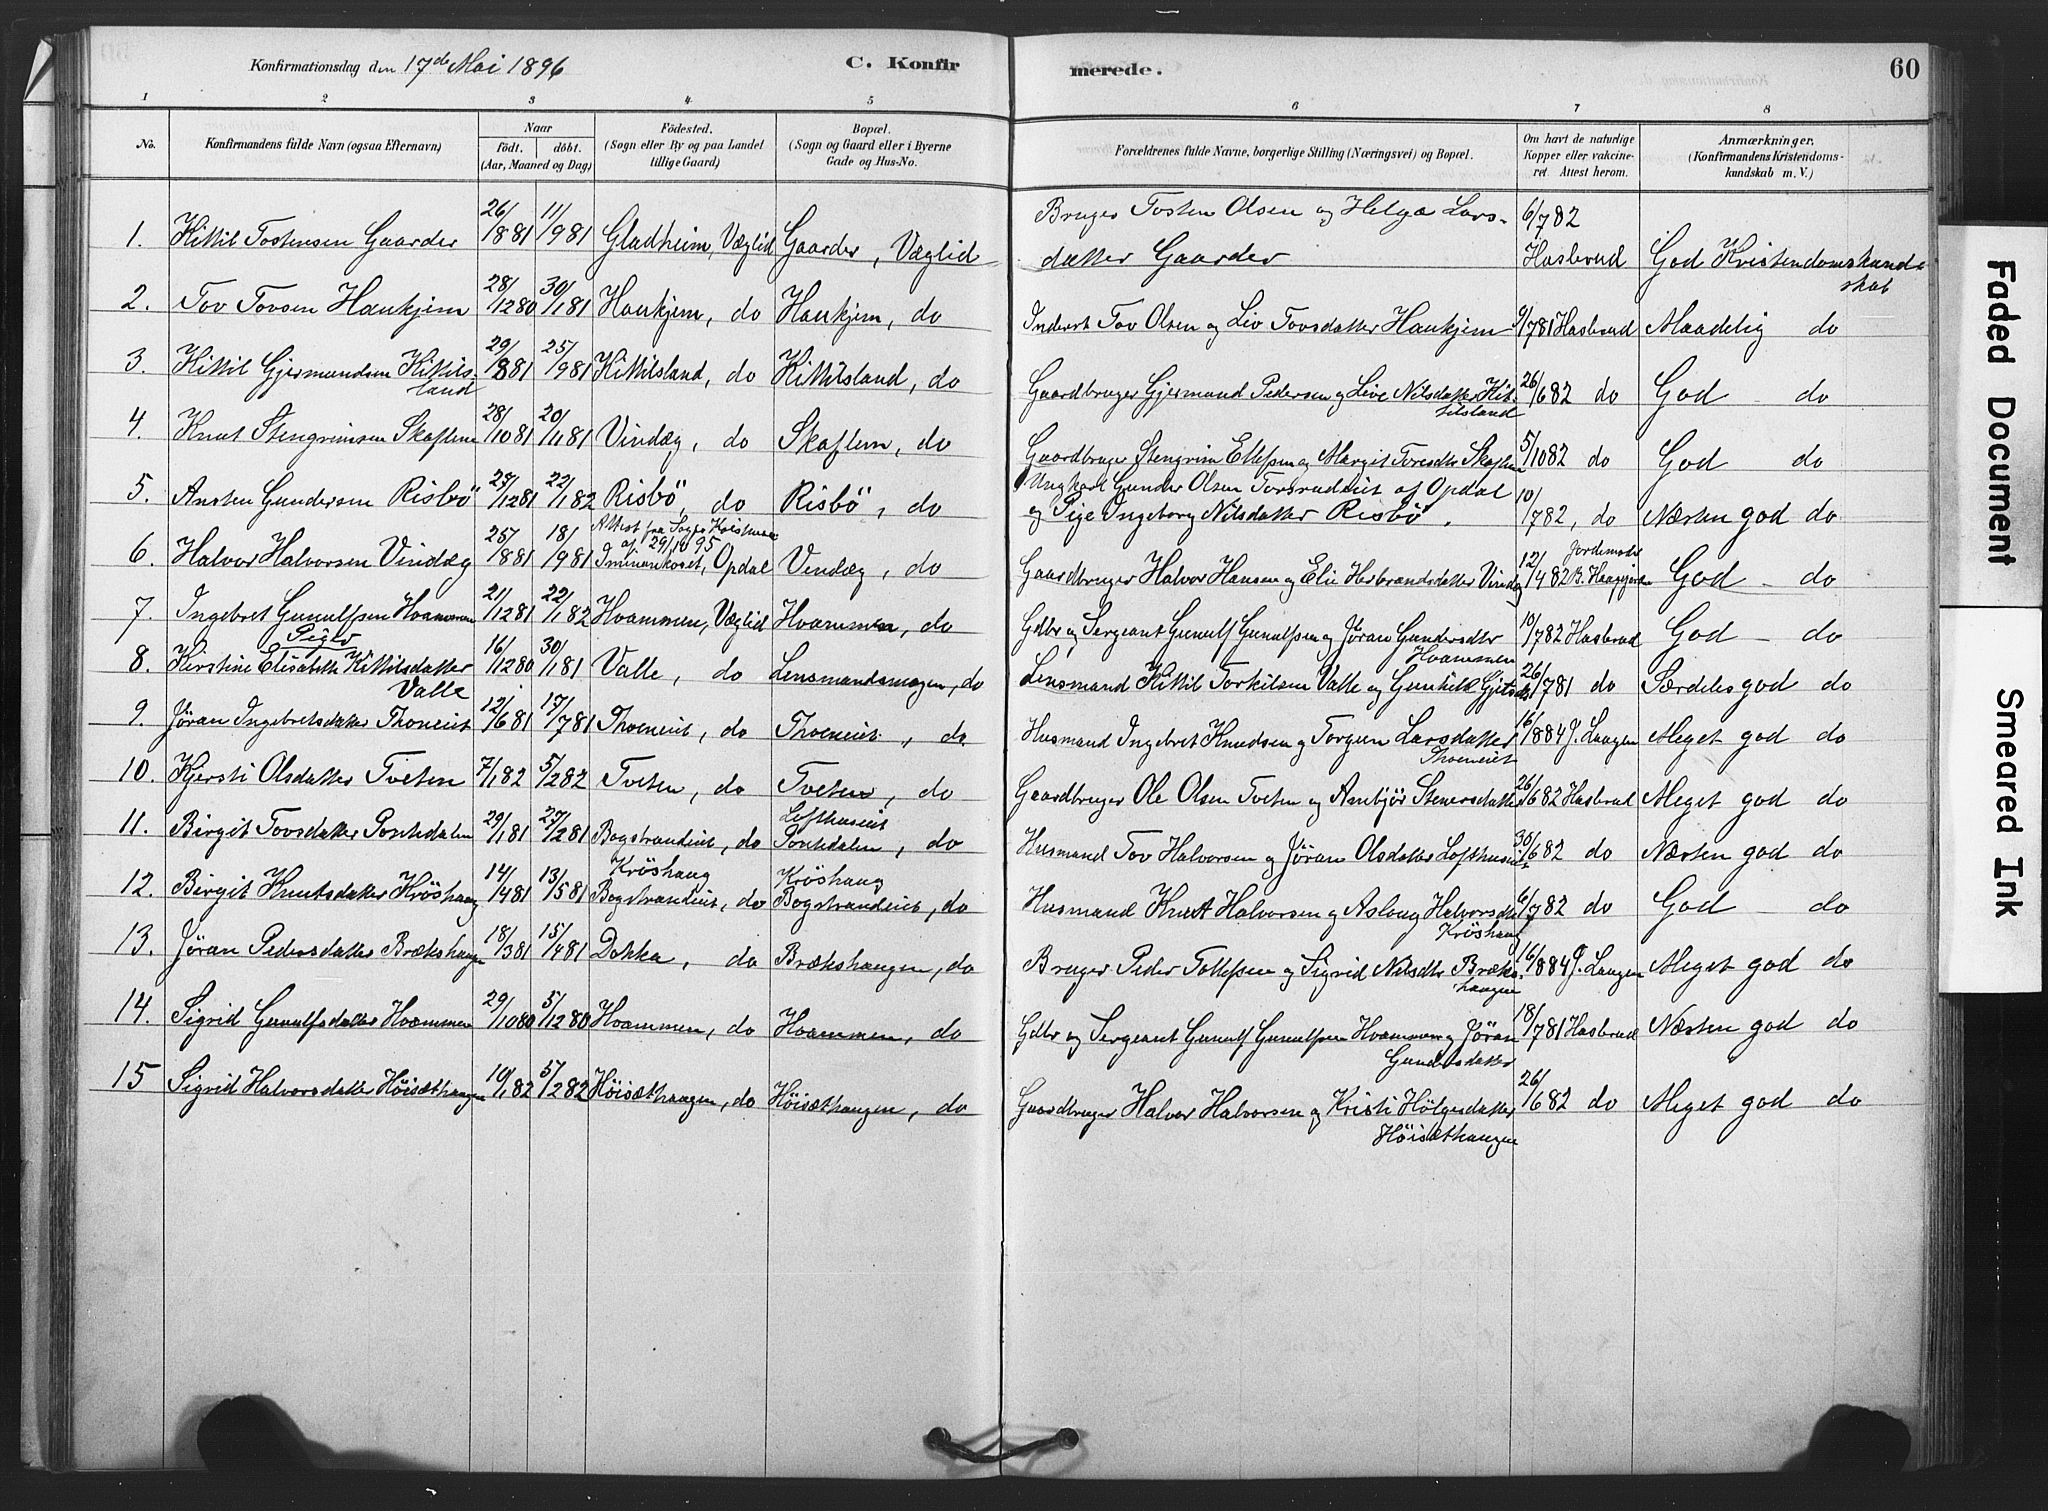 Konfirmationsdag den 17de Mai 1896 C. Konfirmerede. 60
1 2 3 4 5 6 7 8
No. Konfirmandens fulde Navn (ogsaa Efternavn) Naar født. døbt. (Aar, Maaned og Dag) Födested. (Sogn eller By og paa Landet tillige Gaard) Bopæl. (Sogn og Gaard eller i Byerne Gade og Hus-No. Forældrenes fulde Navne, borgerlige Stilling (Næringsvei) og Bopæl. Om havt de naturlige Kopper eller vakcineret. Attest herom. Anmærkninger. (Konfirmandens Kristendomskundskab m. V.)
1. Kittil Tostensen Gaarder 26/881 11/981 Gladheim, Væglid Gaarder, Væglid Bruger Tosten Olsen og Helga Larsdatter Gaarder 6/782 Hasbrud God Kristendomskundskab
2. Tov Tovsen Haukjem 28/1280 30/181 Haukjem, do Haukjem, do Inderst Tov Olsen og Liv Tovsdatter Haukjem 9/781 Hasbrud Maadelig do
3. Kittil Gjermundsen Kittilsland 29/881 25/981 Kittilsland, do Kittilsland, do Gaardbruger Gjermund Pedersen og Live Nilsdatter Kittilsland 26/682 do God - do
4. Knut Stengrimsen Skaflem 28/1081 20/1181 Vindæg, do Skaflem, do Gaardbruger Stengrim Ellefsen og Margit Toresdtr Skaflem 5/1082 do God do
5. Ansten Gundersen Risbö 25/1281 22/182 Risbö, do Risbö, do Ungkarl Gunder Olsen Torsrudeiet af Opdal og Pige Ingeborg Nilsdatter Risbö. 10/782, do Næsten god do
6. Halvor Halvorsen Vindæg 25/881 18/981 Attest fra Sogn af 29/10 95 Opdal Vindæg, do Gaardbruger Halvor Hansen og Elie Herbrandsdatter Vindæg 12/482 Jordemoder B. God - do
7. Ingebret Gunulfsen Hvammen 21/1281 22/182 Hvammen, Væglid Hvammen, do Gdbr og Sergeant Gunulf Gunulfsen og Jöran Gundersdtr Hvammen 10/782 Hasbrud God - do
Piger
8. Kirstine Elisabeth Kittilsdatter Valle 16/1280 30/181 Valle, do Lensmandsmogen, do Lensmand Kittil Torkilsen Valle og Gunhild 26/781 do Særdeles god do
9. Jöran Ingebretsdatter Thoneiet 12/681 17/781 Thoeneiet, do Thoeneiet, do Husmand Ingebret Knudsen og Torgun Larsdatter Thoeneiet 16/884 J. Laagen Meget god do
10. Kjersti Olsdatter Tveten 7/182 5/282 Tveten, do Tveten, do Gaardbruger Ole Olsen Tveten og Ambjör Stenersdatter 26/682 Hasbrud Meget god do
11. Birgit Tovsdatter Portedalen 29/181 27/281 Bogstrandeiet, do Lofthuseiet Portedalen, do Husmand Tov Halvorsen og Jöran Olsdatter Lofthuseiet 30/682 do Næsten god do
12. Birgit Knutsdatter Kröshaug 14/481 13/581 Kröshaug Bogstrandeiet, do Kröshaug Bogstrandeiet, do Husmand Knut Halvorsen og Aslaug Halvorsdtr Kröshaug 6/782 do God - do
13. Jöran Pedersdatter Brækshaugen 18/381 15/481 Dokka, do Brækshaugen, do Bruger Peder Tollefsen og Sigrid Nilsdtr Brækshaugen 16/884 J. Laagen Meget god do
14. Sigrid Gunulfsdatter Hvammen 29/1080 5/1280 Hvammen, do Hvammen, do Gdbr og Sergeant Gunulf Gunulfsen Hvammen og Jöran Gundersdatter 18/781 Hasbrud Næsten god do
15 Sigrid Halvorsdatter Höisæthaugen 10/182 5/282 Höisæthaugen, do Höisæthaugen, do Gaardbruger Halvor Halvorsen og Kristi Hölgesdatter Höisæthaugen 26/682 do Meget god do
Faded Document
Smeared Ink